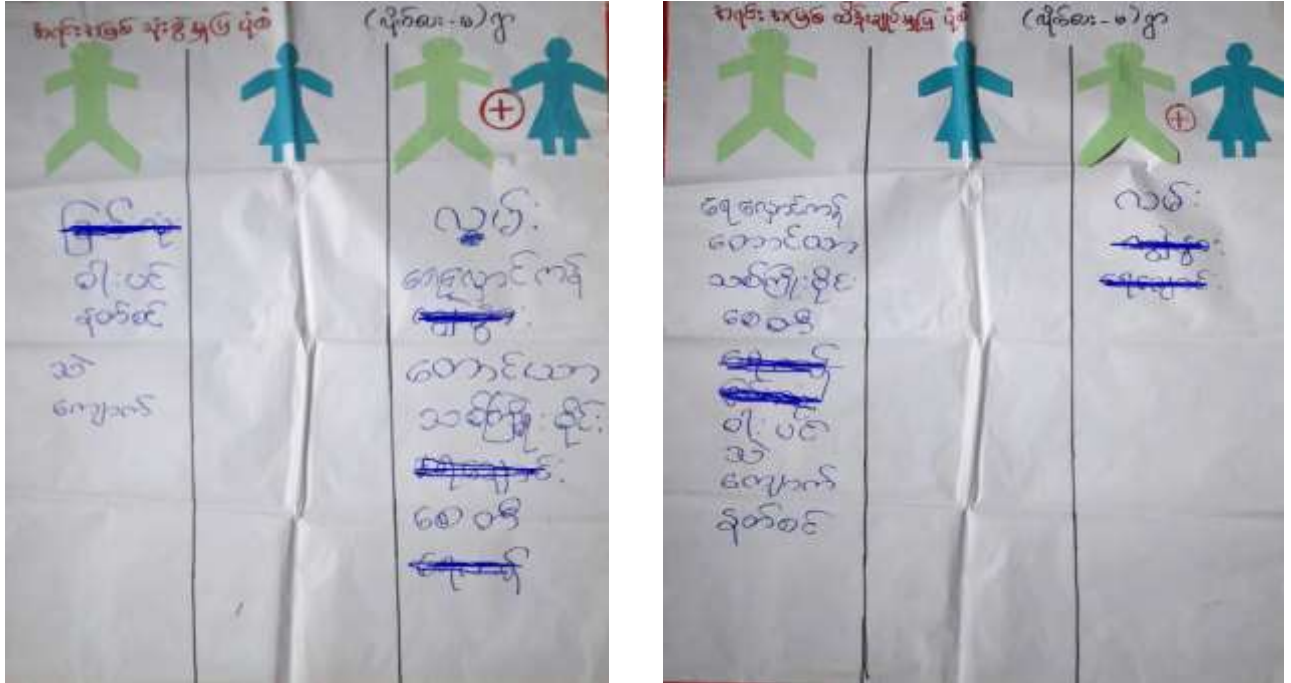 အရင်းအမြစ် သုံးစွဲမှုပြ ပုံစံ (လိုက်လေး-မ) ရွာ
ဝါးပင်
နတ်စင်
သဲ
ကျောက်
လှမ်း
ရေလှောင်ကန်
တောင်ယာ
သစ်ကြိုးဝိုင်း
စေတီ
အရင်းအမြစ် ထိန်းချုပ်မှုပြ ပုံစံ (လိုက်လေး-မ) ရွာ
ရေလှောင်ကန်
တောင်ယာ
သစ်ကြိုးဝိုင်း
စေတီ
ဝါးပင်
သဲ
ကျောက်
နတ်စင်
လမ်း